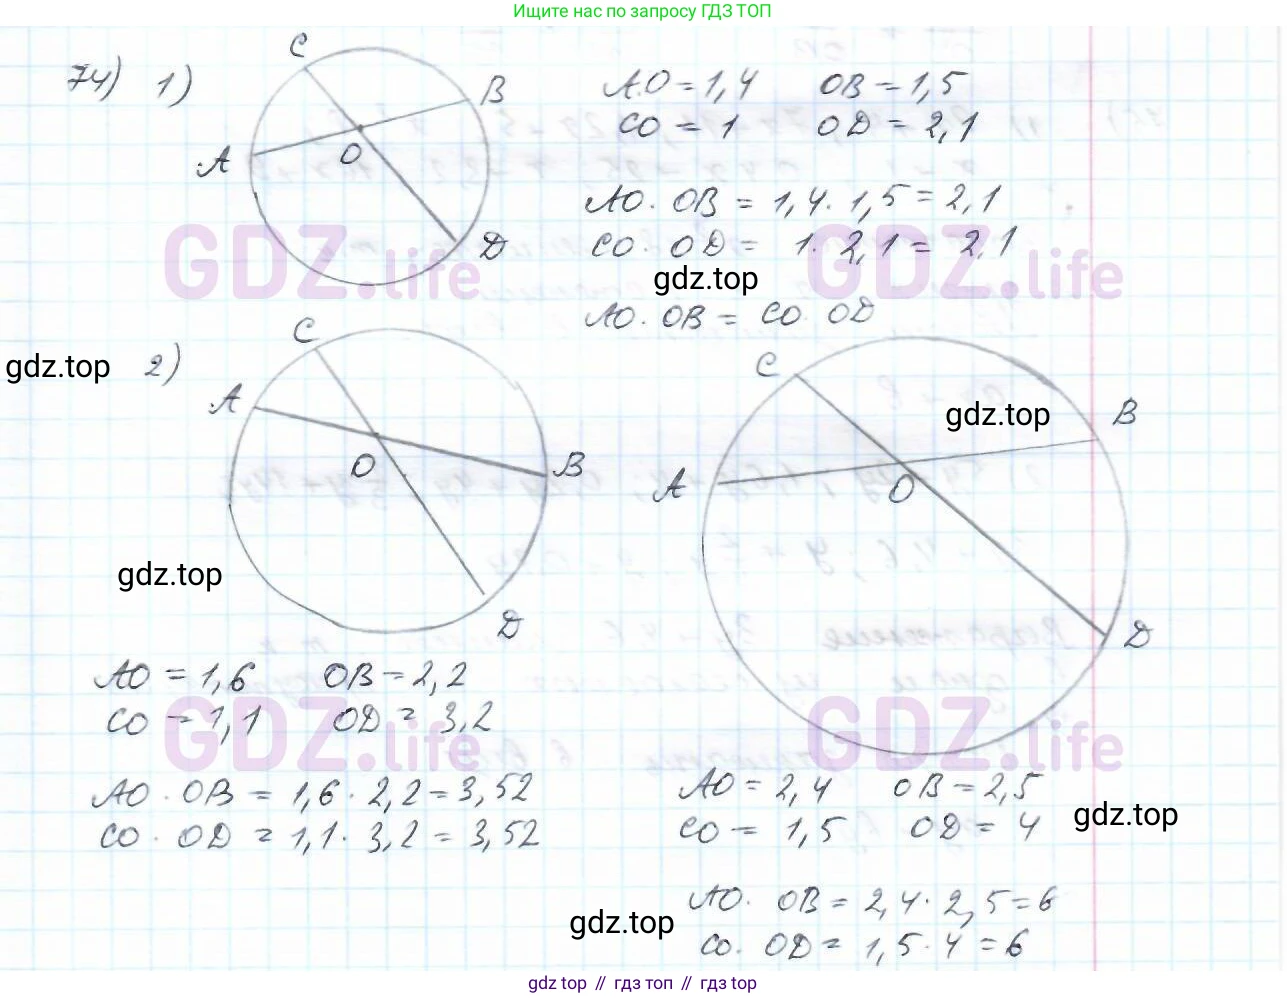 Ищите нас по запросу ГДЗ ТОП
74) 1)
C
B
A
O
D
AO = 1,4 OB = 1,5
CO = 1 OD = 2,1
AO · OB = 1,4 · 1,5 = 2,1
CO · OD = 1 · 2,1 = 2,1
GDZ.life
GDZ.life
gdz.top
AO · OB = CO · OD
gdz.top
2)
C
A
O
B
D
gdz.top
C
gdz.top
B
A
O
D
AO = 1,6 OB = 2,2
CO = 1,1 OD = 3,2
GDZ.life
GDZ.life
AO · OB = 1,6 · 2,2 = 3,52
CO · OD = 1,1 · 3,2 = 3,52
AO = 2,4 OB = 2,5
CO = 1,5 OD = 4
gdz.top
AO · OB = 2,4 · 2,5 = 6
CO · OD = 1,5 · 4 = 6
gdz.top
gdz.top // гдз топ // gdz.top